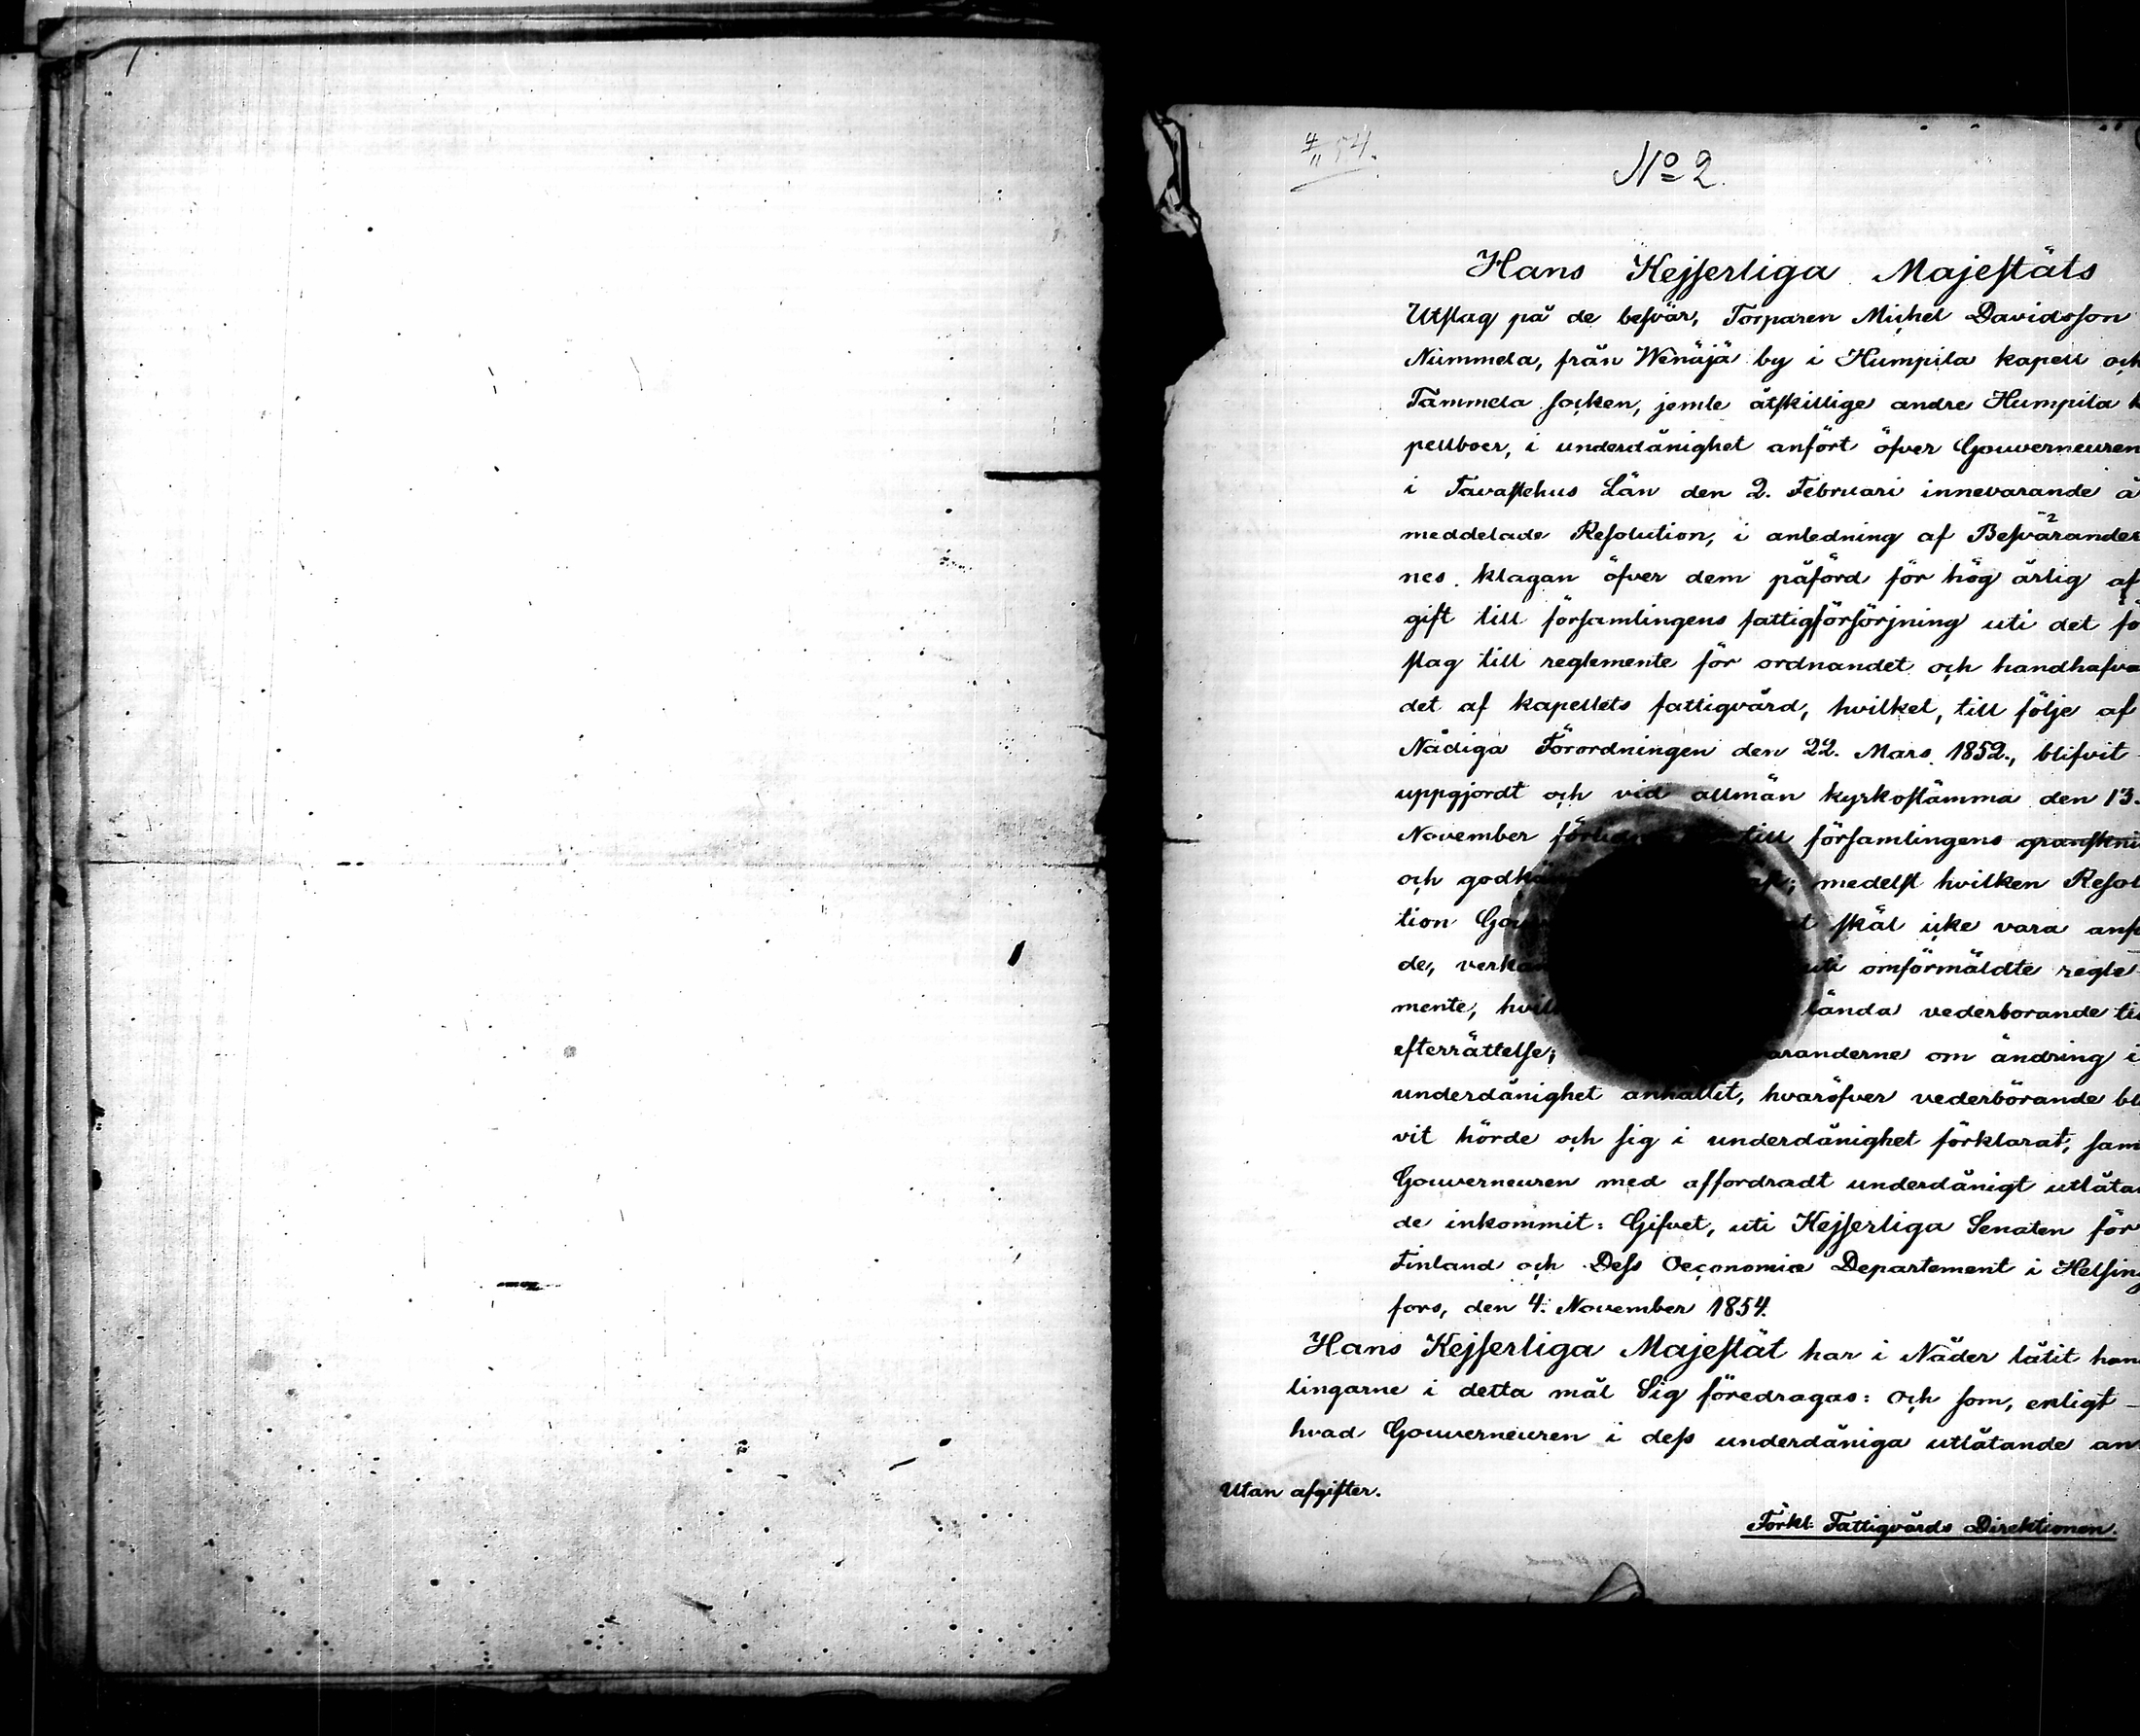 4/11 54.
No 2.
Hans Kejserliga Majestäts
Utslag på de besvär, Torparen Michel Davidsson
Nummela, från Wenäjä by i Humpila kapell och
Tammela socken, jemte åtskillige andre Humpila k
pellboer, i underdånighet anfört öfver Gouverneuren
i Tavastehus Län den 2. Februari innevarande å
meddelade Resolution, i anledning af Besvärander
nes klagan öfver dem påförd för hög årlig af
gift till församlingens fattigförsörjning uti det fö
slag till reglemente för ordnandet och handhafva
det af kapellets fattigvård, hvilket, till följe af
Nådiga Förordningen den 22. Mars 1852., blifvit
uppgjordt och vid allmän kyrkostämma den 13.
November till församlingens granskni
och medelst hvilken Resol
tion skäl icke vara anf
de, uti omförmäldte regle
mente, lända vederborande til
efterrättelse; aranderne om ändring i
underdånighet anhållit, hvaröfver vederbörande bli
vit hörde och sig i underdånighet förklarat, sam
Gouverneuren med affordradt underdånigt utlåtan
de inkommit: Gifvet, uti Kejserliga Senaten för
Finland och Dess Oeconomie Departement i Helsing
fors, den 4. November 1854.
Hans Kejserliga Majestät har i Nåder låtit han
lingarne i detta mål Sig föredragas: Och som, enligt
hvad Gouverneuren i dess underdåniga utlåtande an
Utan afgifter.
Förkl. Fattigvårds Direktionen.